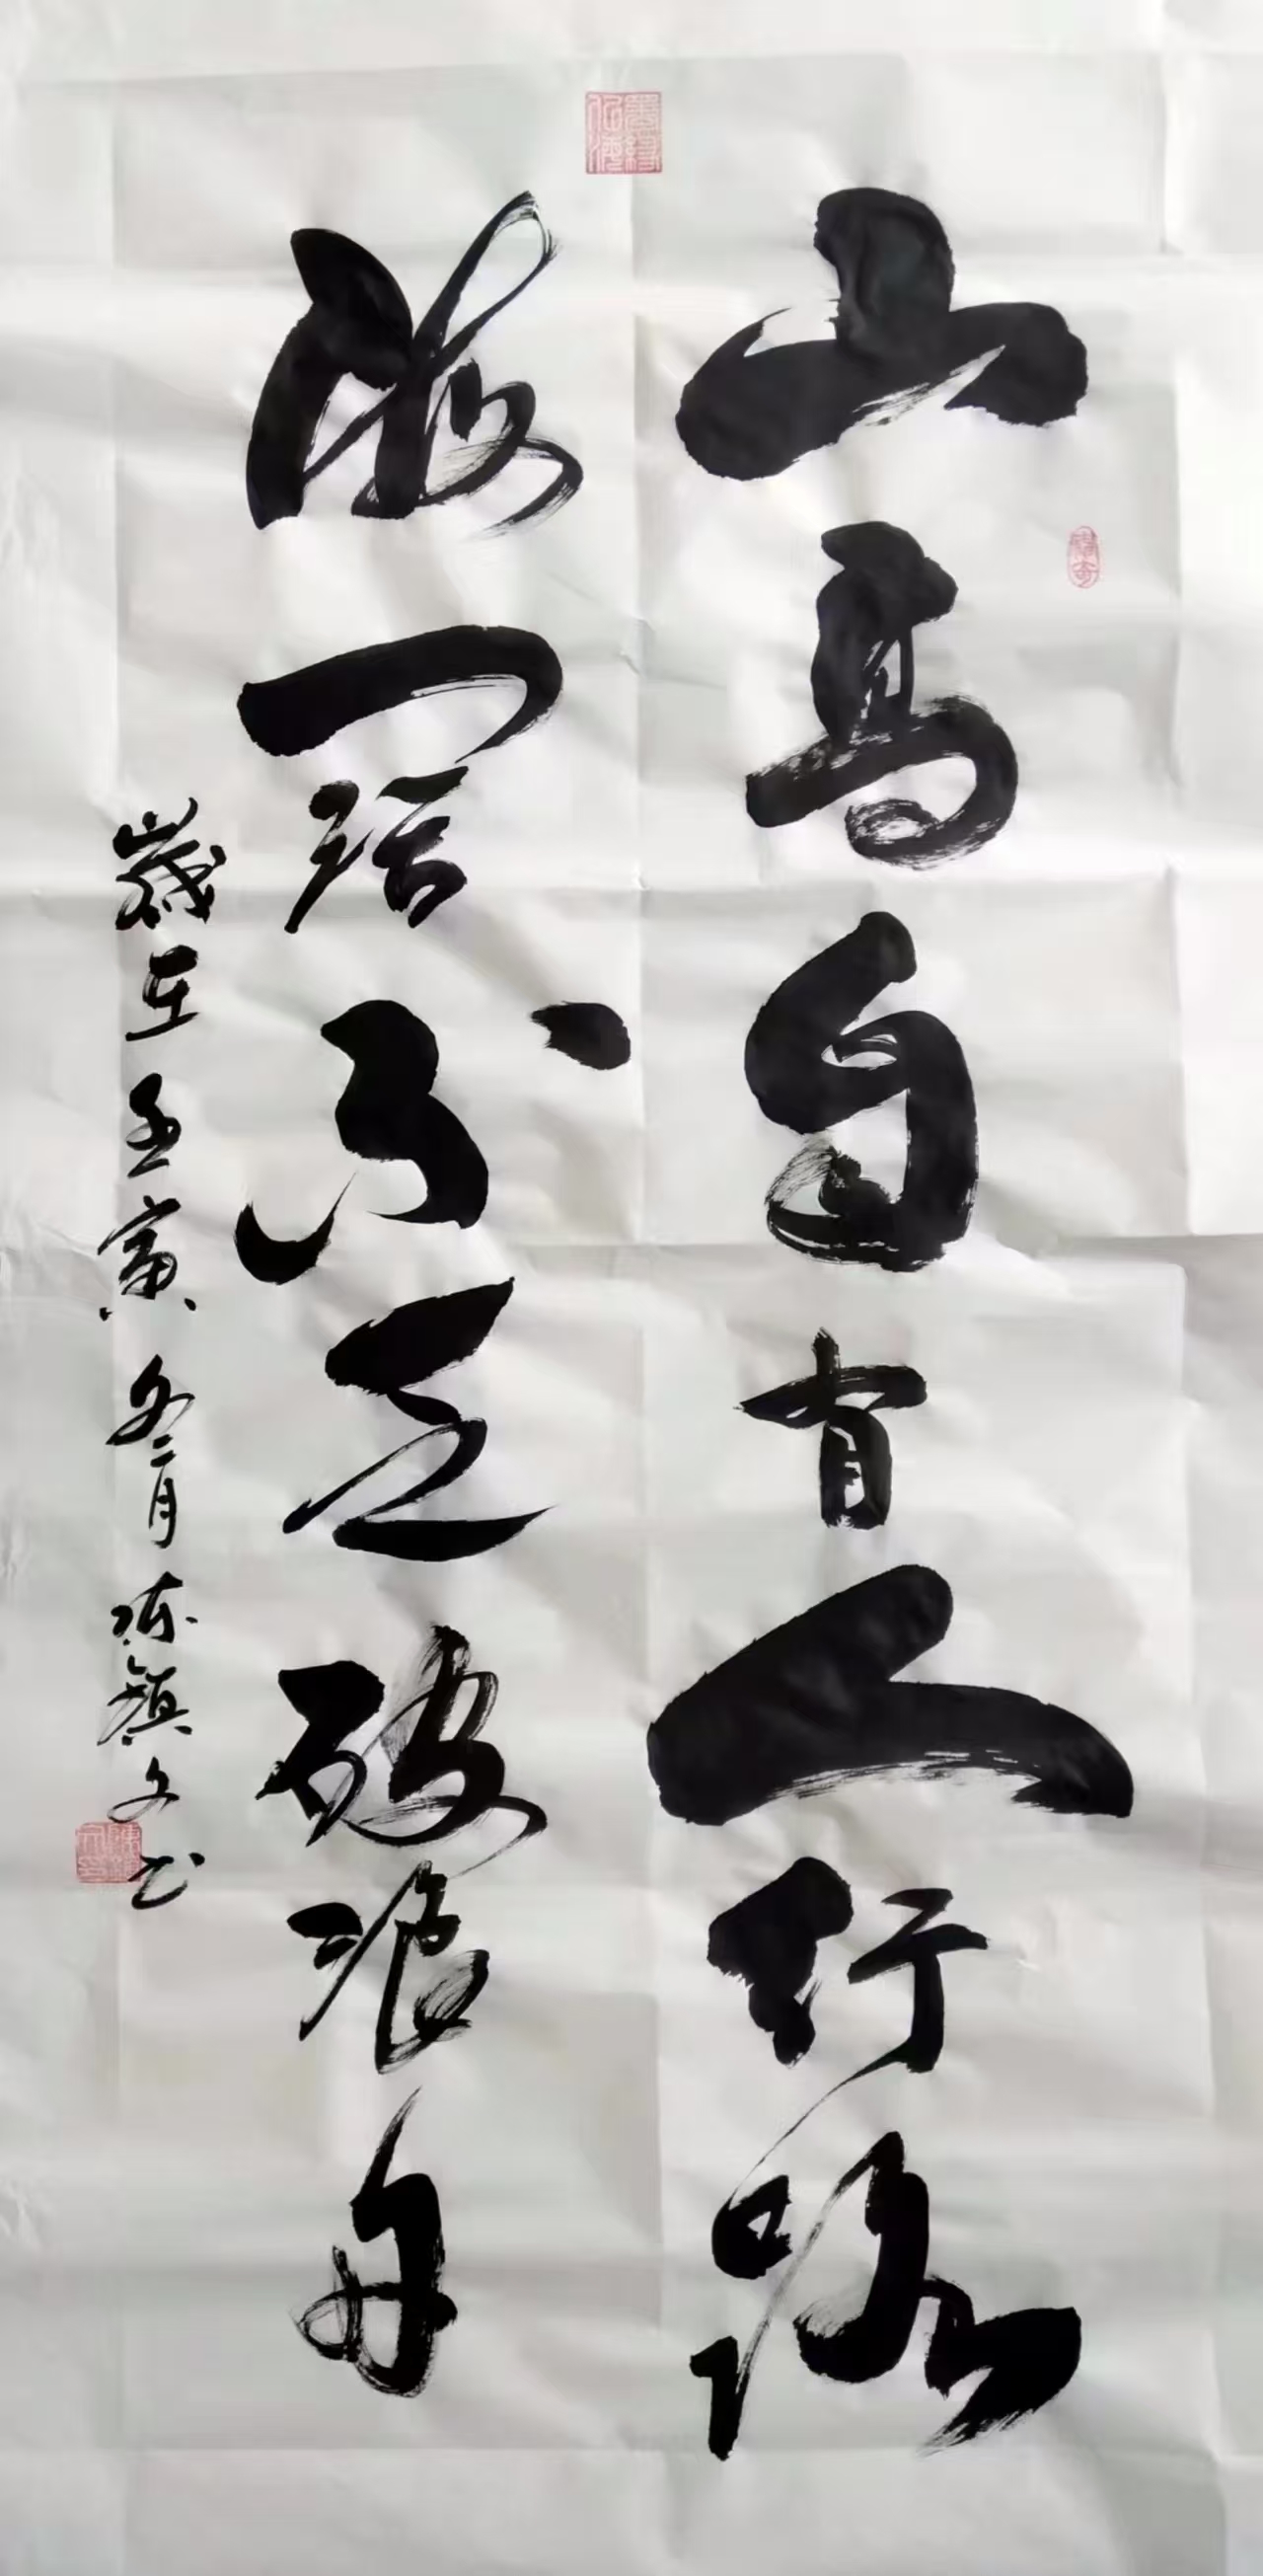 山高自有人行路
海阔不乏破浪舟
歲在壬寅冬二月 陈镇文书